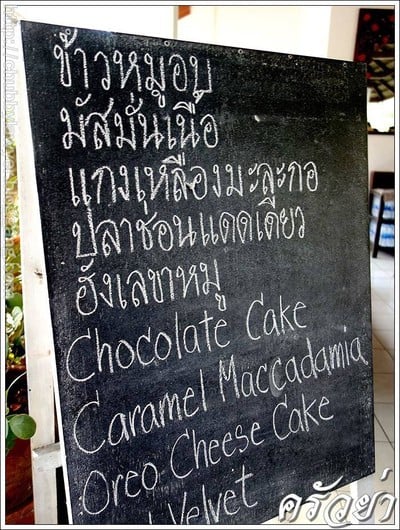 ข้าวหมูอบ
มัสมั่นเนื้อ
แกงเหลืองมะละกอ
ปลาช่อนแดดเดียว
ฮังเลขาหมู
Chocolate Cake
Caramel Maccadamia
Oreo Cheese Cake
Velvet
ครัวย่า